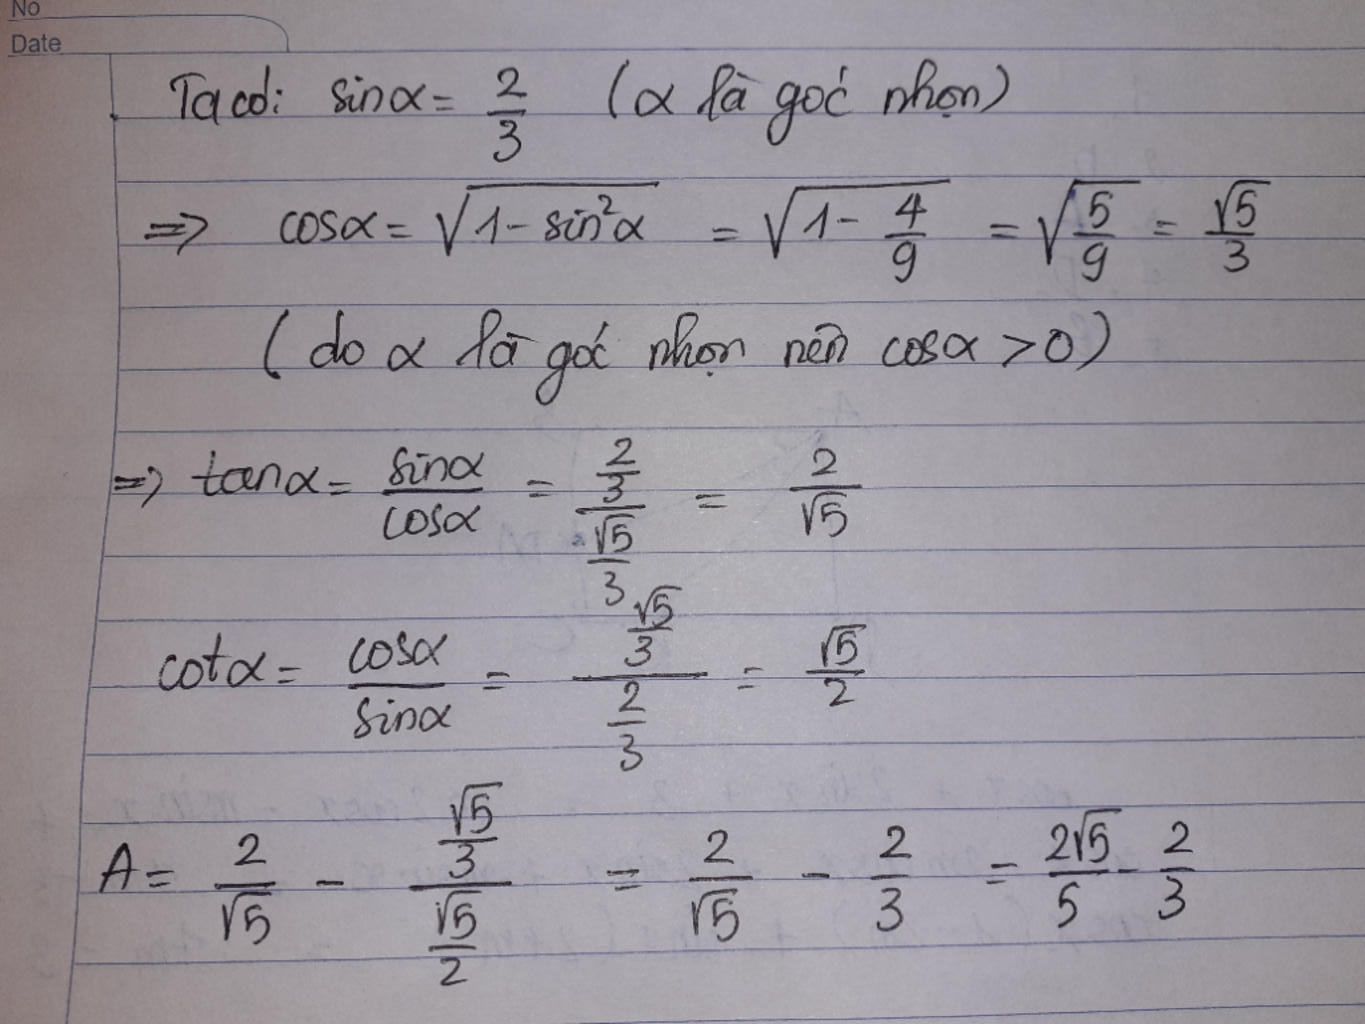 No
Date
Ta có: sinα = 2/3 (α là góc nhọn)
=> cosα = √(1 - sin²α) = √(1 - 4/9) = √(5/9) = √5/3
(do α là góc nhọn nên cosα > 0)
=> tanα = sinα/cosα = (2/3)/(√5/3) = 2/√5
cotα = cosα/sinα = (√5/3)/(2/3) = √5/2
A = 2/√5 - (√5/3)/(√5/2) = 2/√5 - 2/3 = 2√5/5 - 2/3